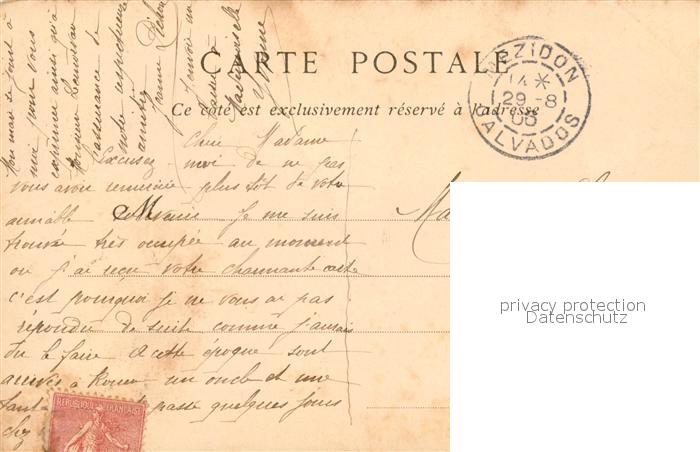 CARTE POSTALE
Ce côté est exclusivement réservé à l'adresse
MEZIDON
14*
29-8
06
CALVADOS
Chère Madame
Excusez-moi de ne pas
vous avoir remerciée plus tôt de votre
aimable souvenir je me suis
trouvée très occupée au moment
où j'ai reçu votre charmante carte
c'est pourquoi je ne vous ai pas
répondu de suite comme j'aurais
dû le faire. A cette époque sont
arrivés à un oncle et une
passé quelques jours
chez
Mon mari se joint à
moi pour vous
exprimer ainsi qu'à
Monsieur
l'assurance de
notre
amitié
privacy protection
Datenschutz